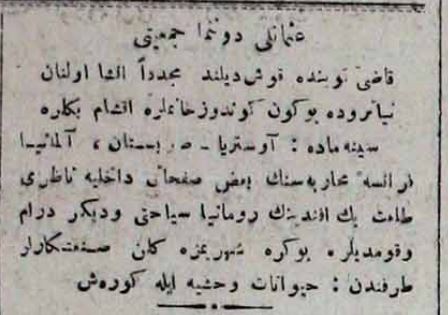 عثمانلی دوننما جمعیتی
قاضی کوینده قوش دیلنده مجدداً انشا اولنان
تیاتروده بوکون کوندوز خانملره اقشام بکلره
سینه ماده : آوستریا ـ صربستان ، آلمانیا
فرانسه محاربه سنك بعض صفحاتی داخلیه ناظری
طلعت بك افندینك رومانیا سیاحتی ودیکر درام
وقومدیلر . بوکره شهریمزه کلن صنعتکارلر
طرفندن : حیوانات وحشیه ایله کورش